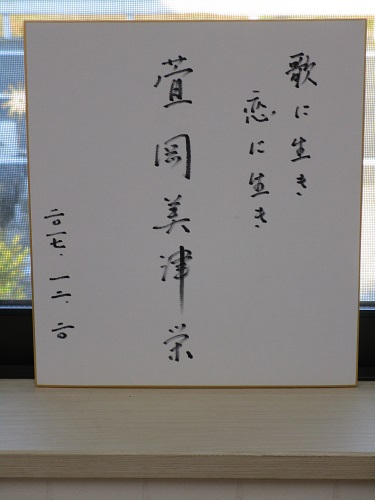 歌に生き
恋に生き
萱岡美津栄
二〇一七.一二.二〇